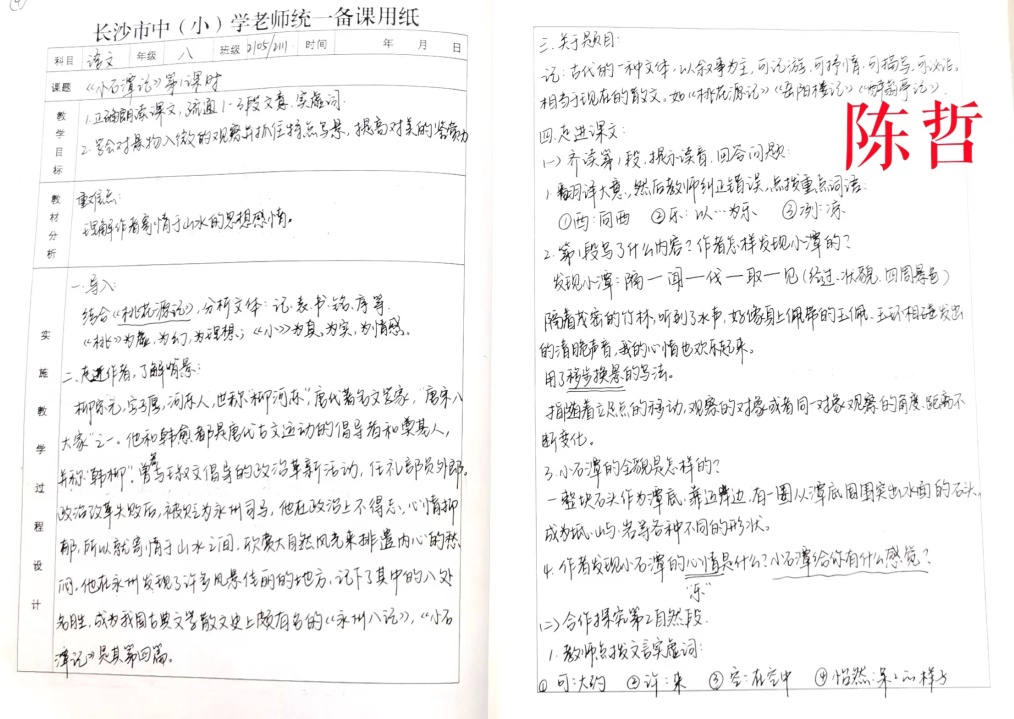 长沙市中（小）学老师统一备课用纸
科目 语文 年级 八 班级 2105/2111 时间 年 月 日
课题 《小石潭记》第1课时
教学目标
1.正确朗读课文，疏通1-3段文意、实虚词.
2.学会对景物入微的观察并抓住特点写景，提高对美的鉴赏力
教材分析
重难点:
理解作者寄情于山水的思想感情。
实施教学过程设计
一.导入:
结合《桃花源记》,分析文体:记.表.书.铭.序等.
《桃》为虚,为幻,为理想;《小》为真,为实,为情感。
二.走进作者,了解背景:
柳宗元,字子厚,河东人,世称"柳河东",唐代著名文学家,"唐宋八
大家"之一。他和韩愈都是唐代古文运动的倡导者和奠基人,
并称"韩柳".曾参与王叔文倡导的政治革新活动,任礼部员外郎。
政治改革失败后,被贬为永州司马,他在政治上不得志,心情抑
郁,所以就寄情于山水之间,欣赏大自然风光来排遣内心的愁
闷。他在永州发现了许多风景佳丽的地方,记下了其中的八处
名胜,成为我国古典文学散文史上颇有名的《永州八记》,《小石
潭记》是其第四篇。
三.关于题目:
记:古代的一种文体,以叙事为主,可记游,可抒情,可描写,可议论。
相当于现在的散文。如《桃花源记》《岳阳楼记》《醉翁亭记》.
陈哲
四.走进课文:
(一)齐读第1段,提示读音,回答问题:
1.翻译大意,然后教师纠正错误,点拨重点词语:
①西:向西 ②乐:以…为乐 ③冽:凉
2.第1段写了什么内容?作者怎样发现小潭的?
发现小潭:隔—闻—伐—取—见(经过、状貌、四周景色)
隔着茂密的竹林,听到了水声,好像身上佩带的玉佩、玉环相碰发出
的清脆声音,我的心情也欢乐起来。
用了移步换景的写法。
指随着立足点的移动,观察的对象或者同一对象观察的角度、距离不
断变化。
3.小石潭的全貌是怎样的?
一整块石头作为潭底,靠近岸边,有一圈从潭底周围突出水面的石头,
成为坻、屿、岩等各种不同的形状。
4.作者发现小石潭的心情是什么?小石潭给你有什么感觉?
"乐"
(二)合作探究第2自然段.
1.教师点拨文言实虚词:
①可:大约 ②许:来 ③空:在空中 ④怡然:呆呆的样子